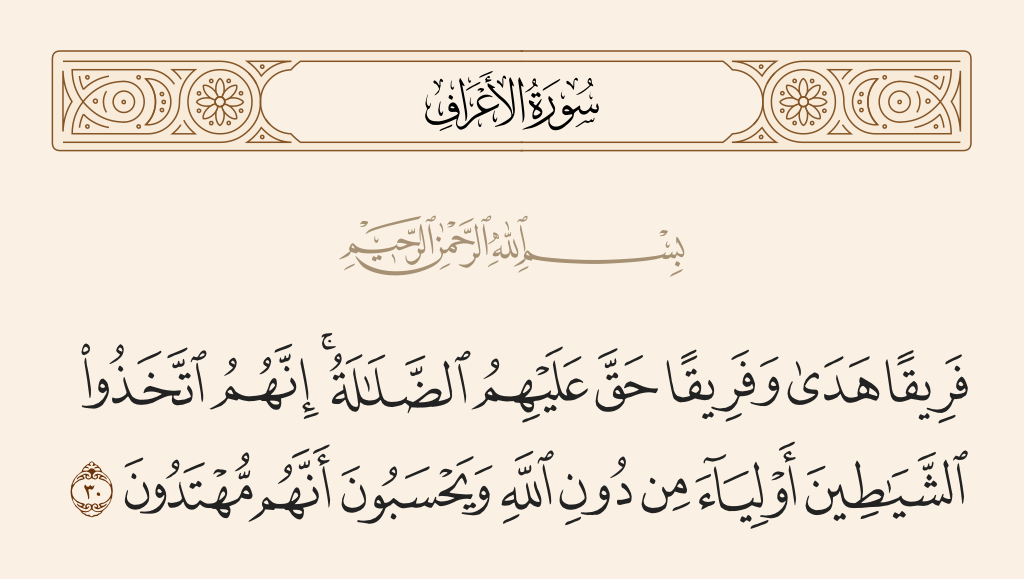 سُورَةُ الأَعْرَافِ
بِسْمِ ٱللَّهِ ٱلرَّحْمَٰنِ ٱلرَّحِيمِ
فَرِيقًا هَدَىٰ وَفَرِيقًا حَقَّ عَلَيْهِمُ ٱلضَّلَٰلَةُ ۚ إِنَّهُمُ ٱتَّخَذُوا۟
ٱلشَّيَٰطِينَ أَوْلِيَآءَ مِن دُونِ ٱللَّهِ وَيَحْسَبُونَ أَنَّهُم مُّهْتَدُونَ ٣٠